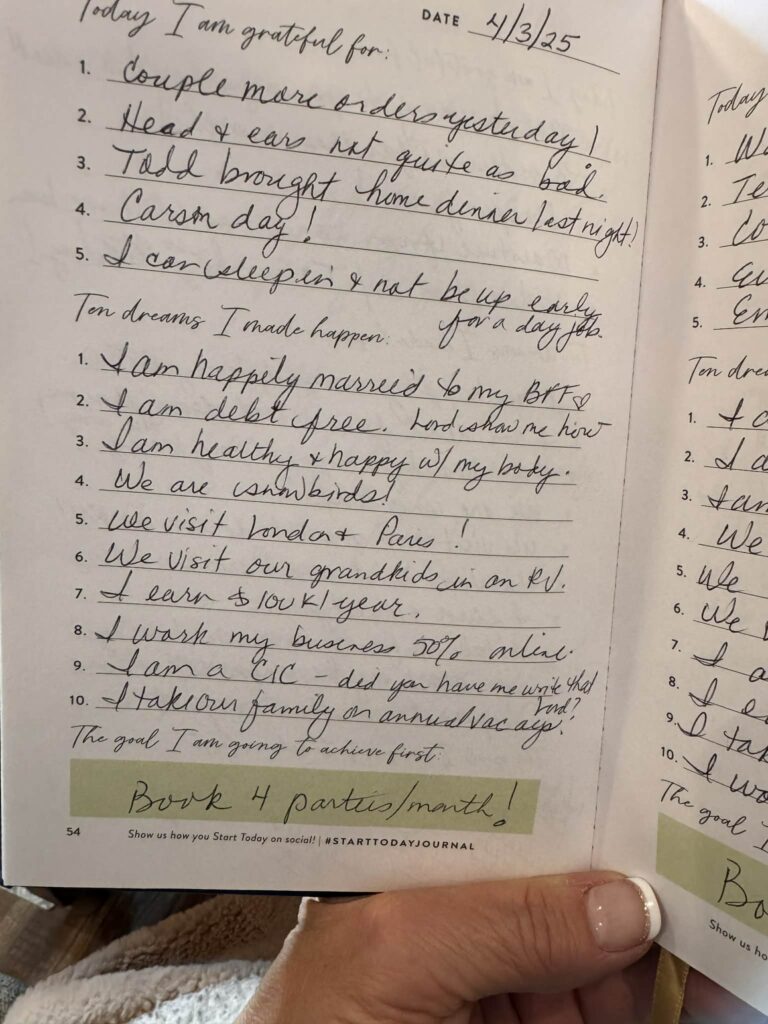 Today I am grateful for:
DATE 4/3/25
1. Couple more orders yesterday!
2. Head & ears not quite as bad.
3. Todd brought home dinner last night!
4. Carson day!
5. I can sleep in & not be up early
for a day job.
Ten dreams I made happen:
1. I am happily married to my BFF♡
2. I am debt free. Lord show me how
3. I am healthy & happy w/ my body.
4. We are snowbirds!
5. We visit London & Paris!
6. We visit our grandkids in an RV.
7. I earn $100K/year.
8. I work my business 50% online.
9. I am a CIC – did you have me write that
Lord?
10. I take our family on annual vacays!
The goal I am going to achieve first:
Book 4 parties/month!
54 Show us how you Start Today on social! | #STARTTODAYJOURNAL
Today
1.
2.
3.
4.
5.
Ten
1. I
2. I
3. I am
4. We
5. We
6. We
7. I
8. I
9. I
10. I
The goal I
Show us